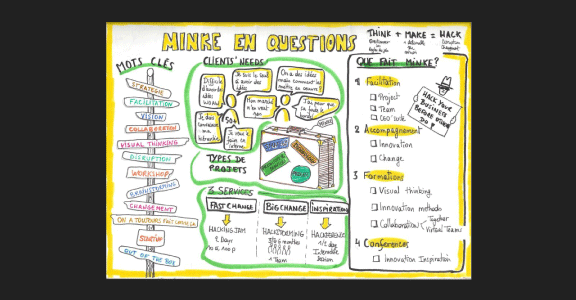 MINKE EN QUESTIONS
THINK + MAKE = HACK
MOTS CLÉS
STRATEGIE
FACILITATION
VISION
COLLABORATION
VISUAL THINKING
DISRUPTION
WORKSHOP
BRAINSTORMING
CHANGEMENT
ON A TOUJOURS FAIT COMME ÇA
STARTUP
OUT OF THE BOX
CLIENTS' NEEDS
Je suis le seul
à avoir des
idées
On a des idées
mais comment les
mettre en oeuvre?
Mon marché
n'en veut
+
50%
J'ai peur que
ça foute le
bordel
Je dois
convaincre ma
hiérarchie
TYPES DE
PROJETS
3 SERVICES
FAST CHANGE
BIG CHANGE
INSPIRATION
HACKING JAM
2 Days
HACKSTORMING
3 to 6 months
1 Team
HACKFERENCE
1/2 day
Interactive
Session
QUE FAIT MINKE?
1 Facilitation
Project
Team
2 Accompagnement
Innovation
Change
3 Formations
Visual thinking
Innovation methods
Collaboration
Together
Virtual Teams
4 Conférences
Innovation Inspiration
HACK YOUR
BUSINESS
BEFORE OTHERS
DO